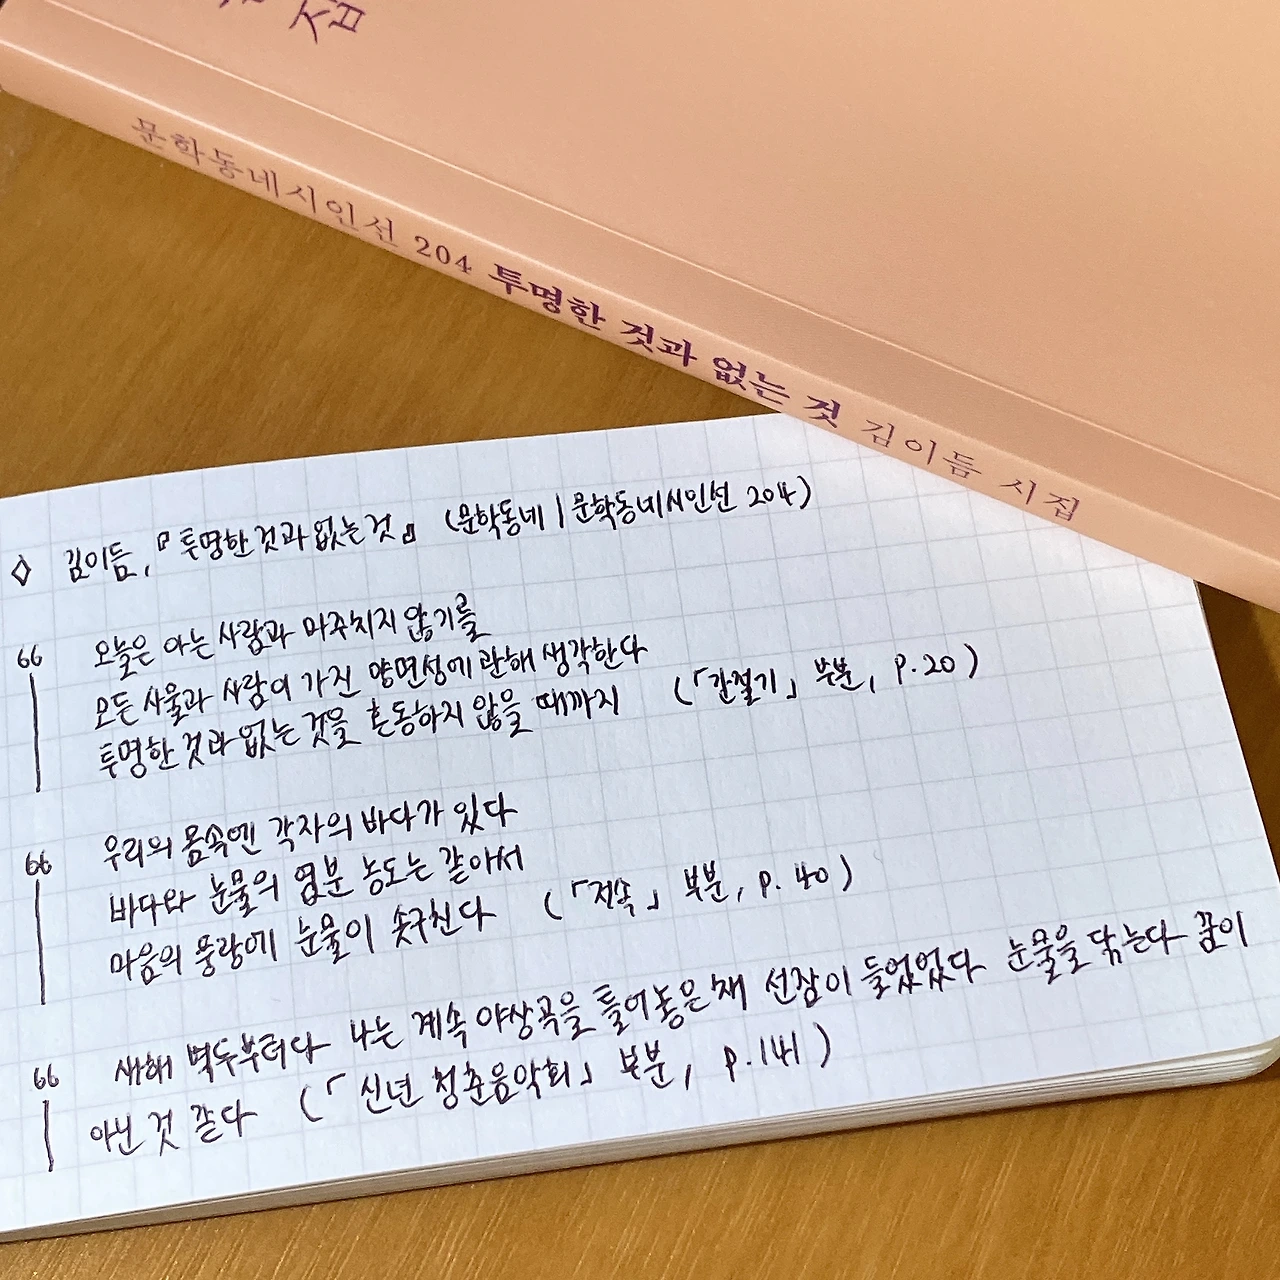 집
문학동네시인선 204 투명한 것과 없는 것 김이듬 시집
◇ 김이듬, 『투명한 것과 없는 것』 (문학동네 | 문학동네시인선 204)
66 오늘은 아는 사람과 마주치지 않기를
모든 사물과 사람이 가진 양면성에 관해 생각한다
투명한 것과 없는 것을 혼동하지 않을 때까지 (「간절기」 부분, p.20)
66 우리의 몸속엔 각자의 바다가 있다
바다와 눈물의 염분 농도는 같아서
마음의 풍랑에 눈물이 솟구친다 (「저속」 부분, p.40)
66 새해 벽두부터다 나는 계속 야상곡을 틀어놓은 채 선잠이 들었었다 눈물을 닦는다 꿈이
아닌 것 같다 (「신년 청춘음악회」 부분, p.141)